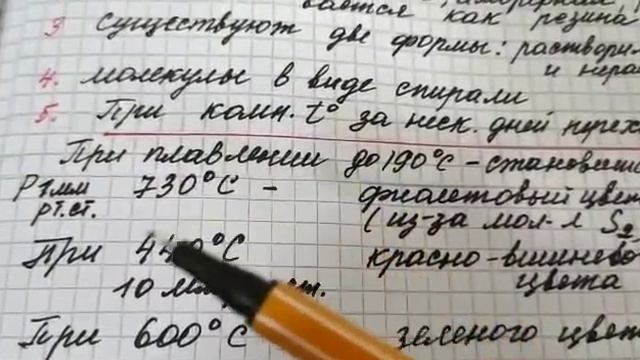 как резина
3 существуют две формы: раствори
и нера
4. молекулы в виде спирали
5. При комн. t° за неск. дней перех
При плавлении до 190°C - становит
P 1мм рт.ст. 730°C - фиолетовый цвет
(из-за мол-л S2
При 440°C красно-вишнёво
10 мм ст. цвета
При 600°C зеленого цвет